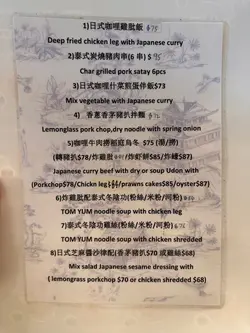 1)日式咖哩雞脾飯
Deep fried chicken leg with Japanese curry
2)泰式炭燒豬肉串(6 串) $
Char grilled pork satay 6pcs
3)日式咖哩什菜煎蛋伴飯$73
Mix vegetable with Japanese curry
4) 香蔥香茅豬扒拌麵
Lemongrass pork chop,dry noodle with spring onion
5)咖哩牛肉撈稻庭烏冬 $75 (湯/撈)
(轉豬扒$78/炸雞脾 /炸蝦餅$85/炸蠔$87)
Japanese curry beef with dry or soup Udon with
(Porkchop$78/Chickn leg /prawns cakes$85/oyster$87)
6)炸雞脾配泰式冬陰功(粉絲/米粉/河粉)
TOM YUM noodle soup with chicken leg
7)泰式冬陰功雞絲(粉絲/米粉/河粉)
TOM YUM noodle soup with chicken shredded
8)日式芝麻醬沙律配(香茅豬扒$70 或雞絲$68)
Mix salad Japanese sesame dressing with
( lemongrass porkchop $70 or chicken shredded $68)